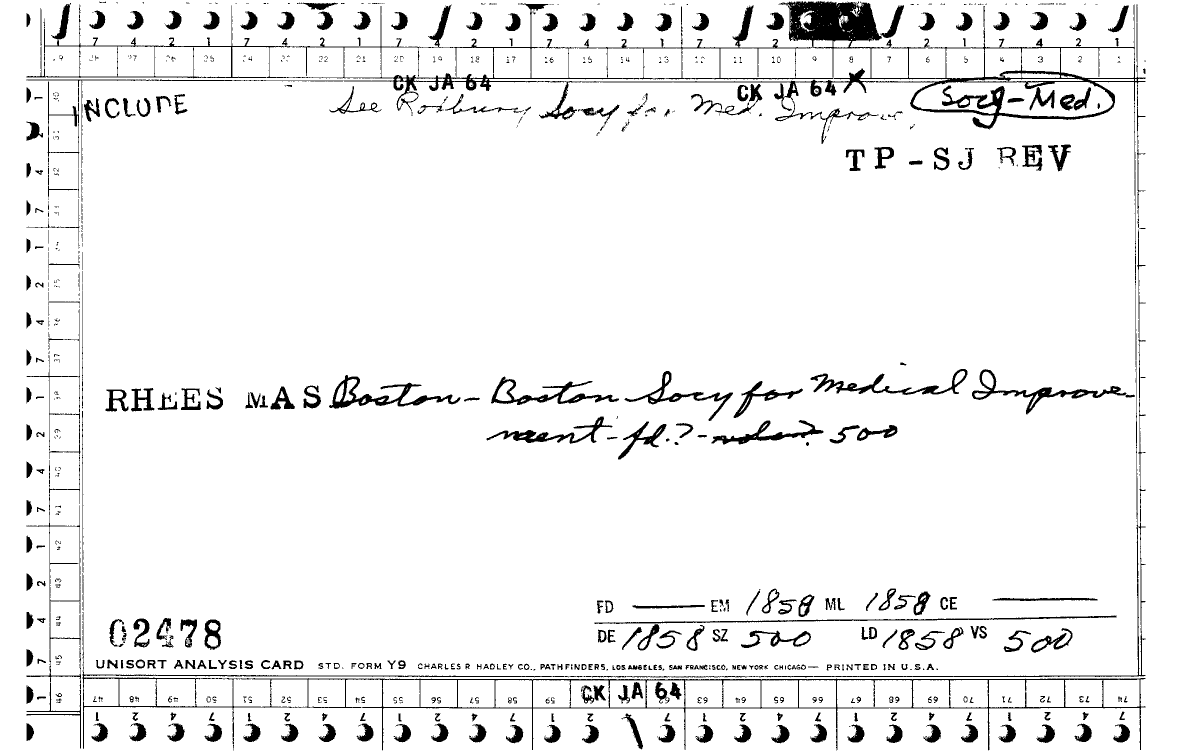 7 4 2 1 7 4 2 1 7 4 2 1 7 4 2 1 7 4 2 1 7 4 2 1 7 4 2 1
26 25 24 23 22 21 20 19 18 17 16 15 14 13 12 11 10 9 8 7 6 5 4 3 2 1
CK JA 64 CK JA 64 X
INCLUDE See Roxbury Socy for Med. Improve. Socy-Med.
TP-SJ REV
RHEES MAS Boston - Boston Socy for Medical Improve-
ment - fd.? - vols.? 500
FD — EM 1858 ML 1858 CE —
02478 DE 1858 SZ 500 LD 1858 VS 500
UNISORT ANALYSIS CARD STD. FORM Y9 CHARLES R HADLEY CO., PATHFINDERS, LOS ANGELES, SAN FRANCISCO, NEW YORK CHICAGO — PRINTED IN U.S.A.
CK JA 64
47 48 49 50 51 52 53 54 55 56 57 58 59 60 61 62 63 64 65 66 67 68 69 70 71 72 73 74
1 2 4 7 1 2 4 7 1 2 4 7 1 2 4 7 1 2 4 7 1 2 4 7